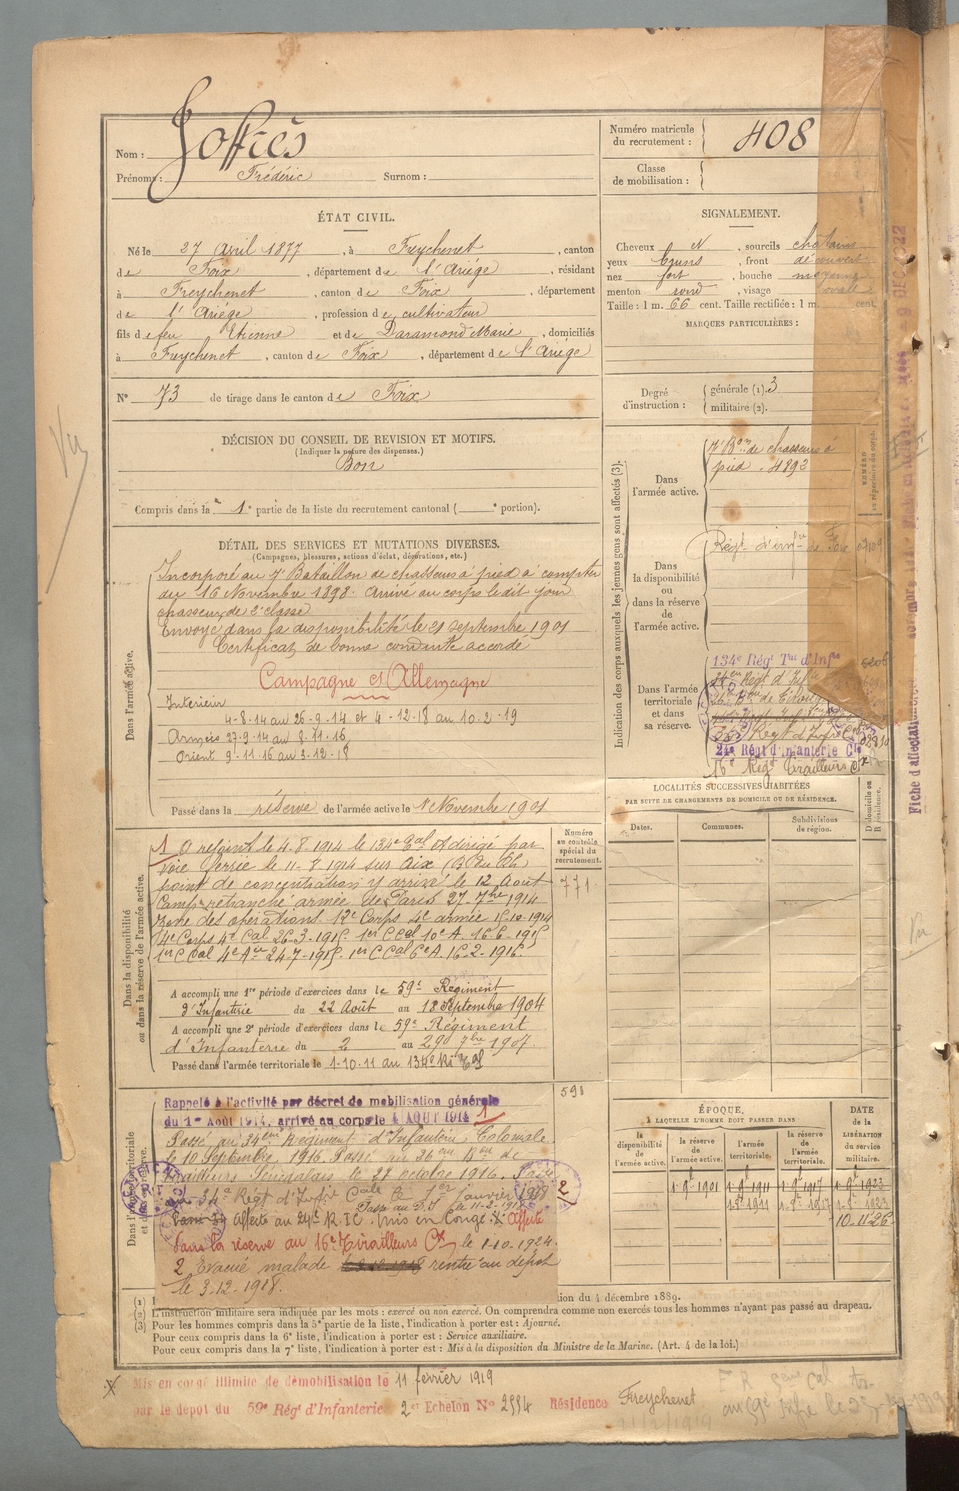 Nom : Joffrès
Prénoms : Frédéric Surnom :
Numéro matricule du recrutement : 408
Classe de mobilisation :
ÉTAT CIVIL.
Né le 27 Avril 1877, à Freychenet, canton
de Foix, département de l'Ariège, résidant
à Freychenet, canton de Foix, département
de l'Ariège, profession de cultivateur
fils de feu Etienne et de Daramond Marie, domiciliés
à Freychenet, canton de Foix, département de l'Ariège
N° 73 de tirage dans le canton de Foix
SIGNALEMENT.
Cheveux N, sourcils chatains
yeux bruns, front découvert
nez fort, bouche moyenne
menton rond, visage ovale
Taille : 1 m. 66 cent. Taille rectifiée : 1 m. cent.
MARQUES PARTICULIÈRES :
Degré d'instruction : générale (1). 3
militaire (2).
DÉCISION DU CONSEIL DE REVISION ET MOTIFS.
(Indiquer la nature des dispenses.)
Bon
Compris dans la 1e partie de la liste du recrutement cantonal ( e portion).
DÉTAIL DES SERVICES ET MUTATIONS DIVERSES.
(Campagnes, blessures, actions d'éclat, décorations, etc.)
Dans l'armée active.
Incorporé au 7e Bataillon de chasseurs à pied à compter
du 16 Novembre 1898. Arrivé au corps le dit jour
chasseur de 2e classe
Envoyé dans la disponibilité le 21 septembre 1901
Certificat de bonne conduite accordé
Campagne et Allemagne
Intérieur
4-8-14 au 26-9-14 et 4-12-18 au 10-2-19
Armées 27-9-14 au 8-11-16
Orient 9-11-16 au 3-12-18
Passé dans la réserve de l'armée active le 1 Novembre 1901
Indication des corps auxquels les jeunes gens sont affectés (3).
Dans l'armée active.
7e Bon de chasseurs à
pied. 4893
Dans la disponibilité ou dans la réserve de l'armée active.
Régt d'infie de Foix
Dans l'armée territoriale et dans sa réserve.
134e Régt Tal d'Infie
24e Régt d'Infanterie Cle
16e Régt Tirailleurs
NUMÉRO au répertoire du corps.
LOCALITÉS SUCCESSIVES HABITÉES
PAR SUITE DE CHANGEMENTS DE DOMICILE OU DE RÉSIDENCE.
Dates. Communes. Subdivisions de région. D domicile ou R résidence.
Dans la disponibilité ou dans la réserve de l'armée active.
1 A rejoint le 4-8-1914 le 134e Tal et dirigé par
voie ferrée le 11-8-1914 sur Aix (B du Rh)
point de concentration y arrivé le 12 Août
Camp retranché armée de Paris 27-7bre 1914
Zone des opérations 12e Corps 4e armée
4e Corps 4e Cal 26-3-1915. 1er C Cal 10e A. 16-6-1915
1er C Cal 4e Aée 24-7-1915. 1er C Cal 6e A. 16-2-1916.
Numéro au contrôle spécial du recrutement.
771
A accompli une 1re période d'exercices dans le 59e Régiment
d'Infanterie du 22 Août au 18 Septembre 1904
A accompli une 2e période d'exercices dans le 59e Régiment
d'Infanterie du 2 au 29 7bre 1907.
Passé dans l'armée territoriale le 1-10-11 au 134e Rt Tal
591
Rappelé à l'activité par décret de mobilisation générale
du 1er Août 1914, arrivé au corps le 4 AOUT 1914 1
Passé au 34ème Régiment d'Infanterie Coloniale
le 10 Septembre 1916 Passé au 36ème Bon de
Tirailleurs Sénégalais le 28 octobre 1916. Passé
au 34e Régt d'Infie Cale le 1er janvier 1918
Affecté au 24e R.I.C. Mis en Congé Affecté
dans la réserve au 16e Tirailleurs Cx le 1-10-1924.
2 Evacué malade rentré au dépôt
le 3-12-1918.
2
ÉPOQUE,
À LAQUELLE L'HOMME DOIT PASSER DANS
la disponibilité de l'armée active. la réserve de l'armée active. l'armée territoriale. la réserve de l'armée territoriale.
DATE de la LIBÉRATION du service militaire.
1-9-1901 1-9-1911 1-9-1917 1-9-1923
10-11-26
(1) tion du 4 décembre 1889.
(2) L'instruction militaire sera indiquée par les mots : exercé ou non exercé. On comprendra comme non exercés tous les hommes n'ayant pas passé au drapeau.
(3) Pour les hommes compris dans la 5e partie de la liste, l'indication à porter est : Ajourné.
Pour ceux compris dans la 6e liste, l'indication à porter est : Service auxiliaire.
Pour ceux compris dans la 7e liste, l'indication à porter est : Mis à la disposition du Ministre de la Marine. (Art. 4 de la loi.)
Mis en congé illimité de démobilisation le 11 février 1919
par le dépôt du 59e Régt d'Infanterie 2e Echelon N° 2554 Résidence Freychenet
Vu
Fiche d'affectation